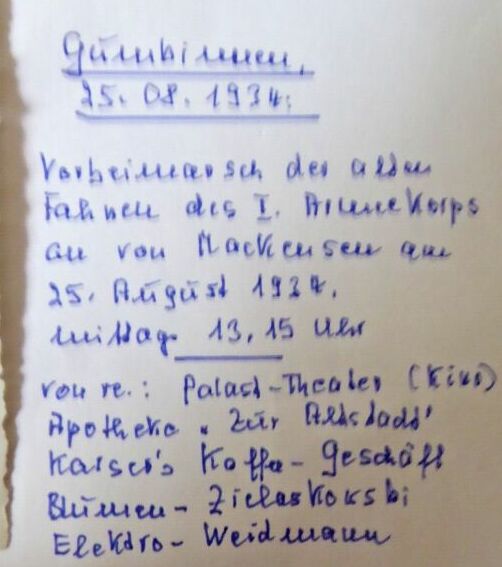 Gumbinnen,
25. 08. 1934:
Vorbeimarsch der alten
Fahnen des I. Armee Korps
an von Mackensen am
25. August 1934.
mittag 13,15 Uhr
von re.: Palast-Theater (Kino)
Apotheke „Zur Altstadt"
Kaiser's Kaffe-Geschäft
Blumen-Zielaskowski
Elektro-Weidmann